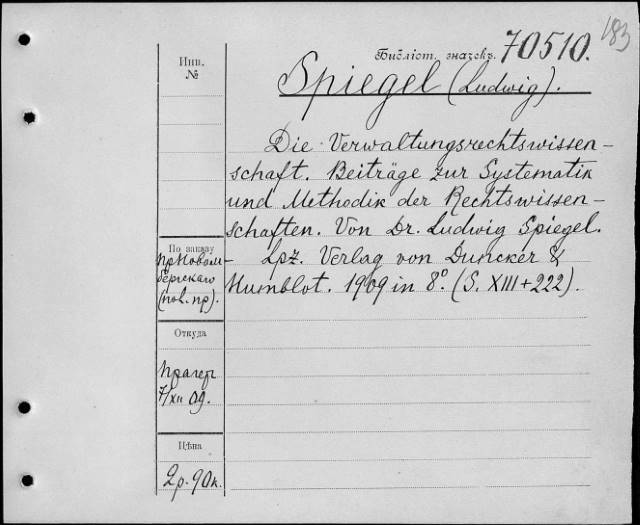 183
Библіот. значекъ 70510.
Инв.
№
Spiegel (Ludwig).
Die Verwaltungsrechtswissen-
schaft. Beiträge zur Systematik
und Methodik der Rechtswissen-
schaften. Von Dr. Ludwig Spiegel.
Lpz. Verlag von Duncker &
Humblot. 1909 in 8° (S. XIII + 222).
По заказу
(пов. пр).
Откуда
Прагеръ
7/XII 09.
Цѣна
2 р. 90 к.